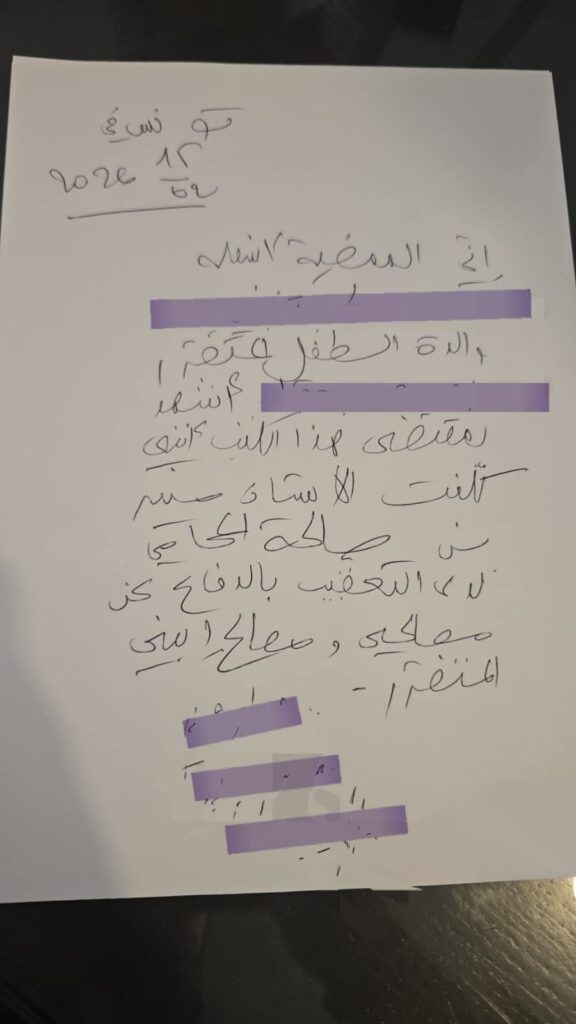 تونس في
12/02 2026
إني الممضية أسفله
والدة الطفل
أشهد
بمقتضى هذا الكتب أنني
كلّفت الأستاذ منير
بن صالحة المحامي
لدى التعقيب بالدفاع عن
مصالحي ومصالح ابني
المتضرر -